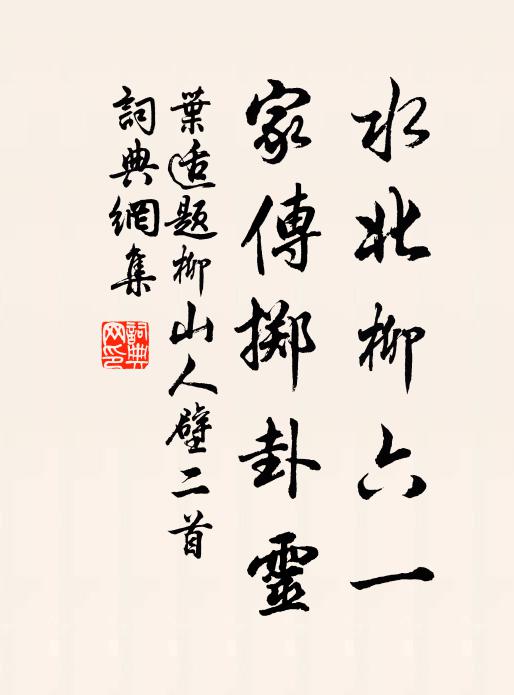 水北柳六一
家傳擲卦靈
葉適題柳山人壁二首
詞典網集
詞典網印